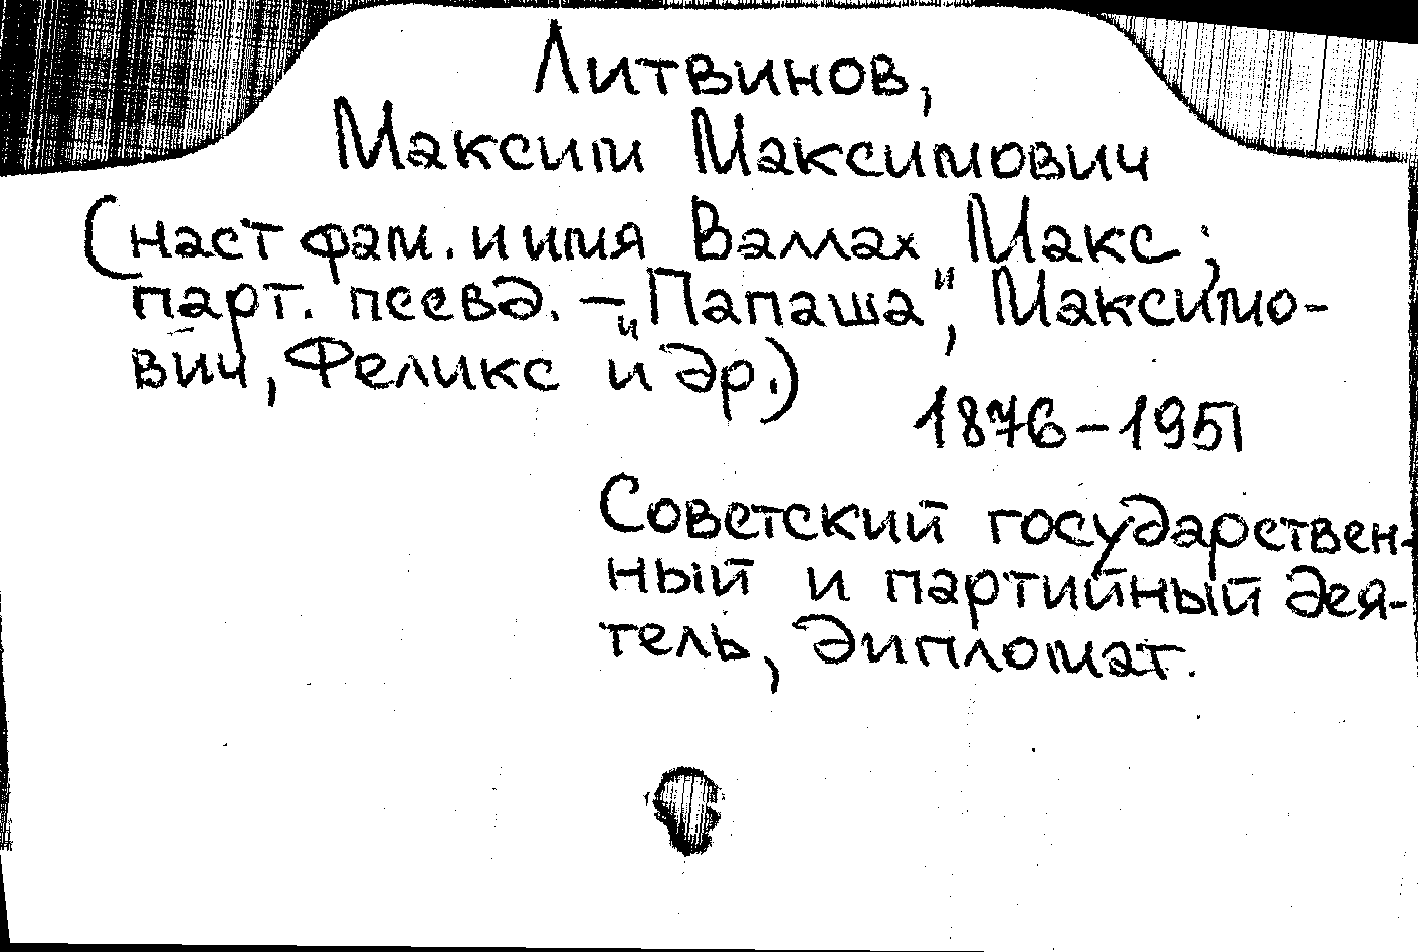 Литвинов,
Максим Максимович
(наст фам. и имя Валлах Макс;
парт. псевд. – „Папаша", Максимо-
вич, Феликс и др.)
1876–1951
Советский государствен-
ный и партийный дея-
тель, дипломат.